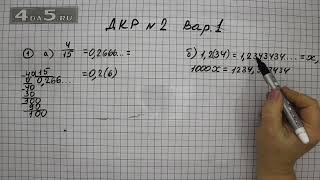 4DA5.RU
ДКР №2 Вар. 1
① а) 4/15 = 0,2666... =
= 0,2(6)
40 | 15
0 | 0,266...
40
30
100
90
100
б) 1,2(34) = 1,2343434... = x,
1000x = 1234,3434